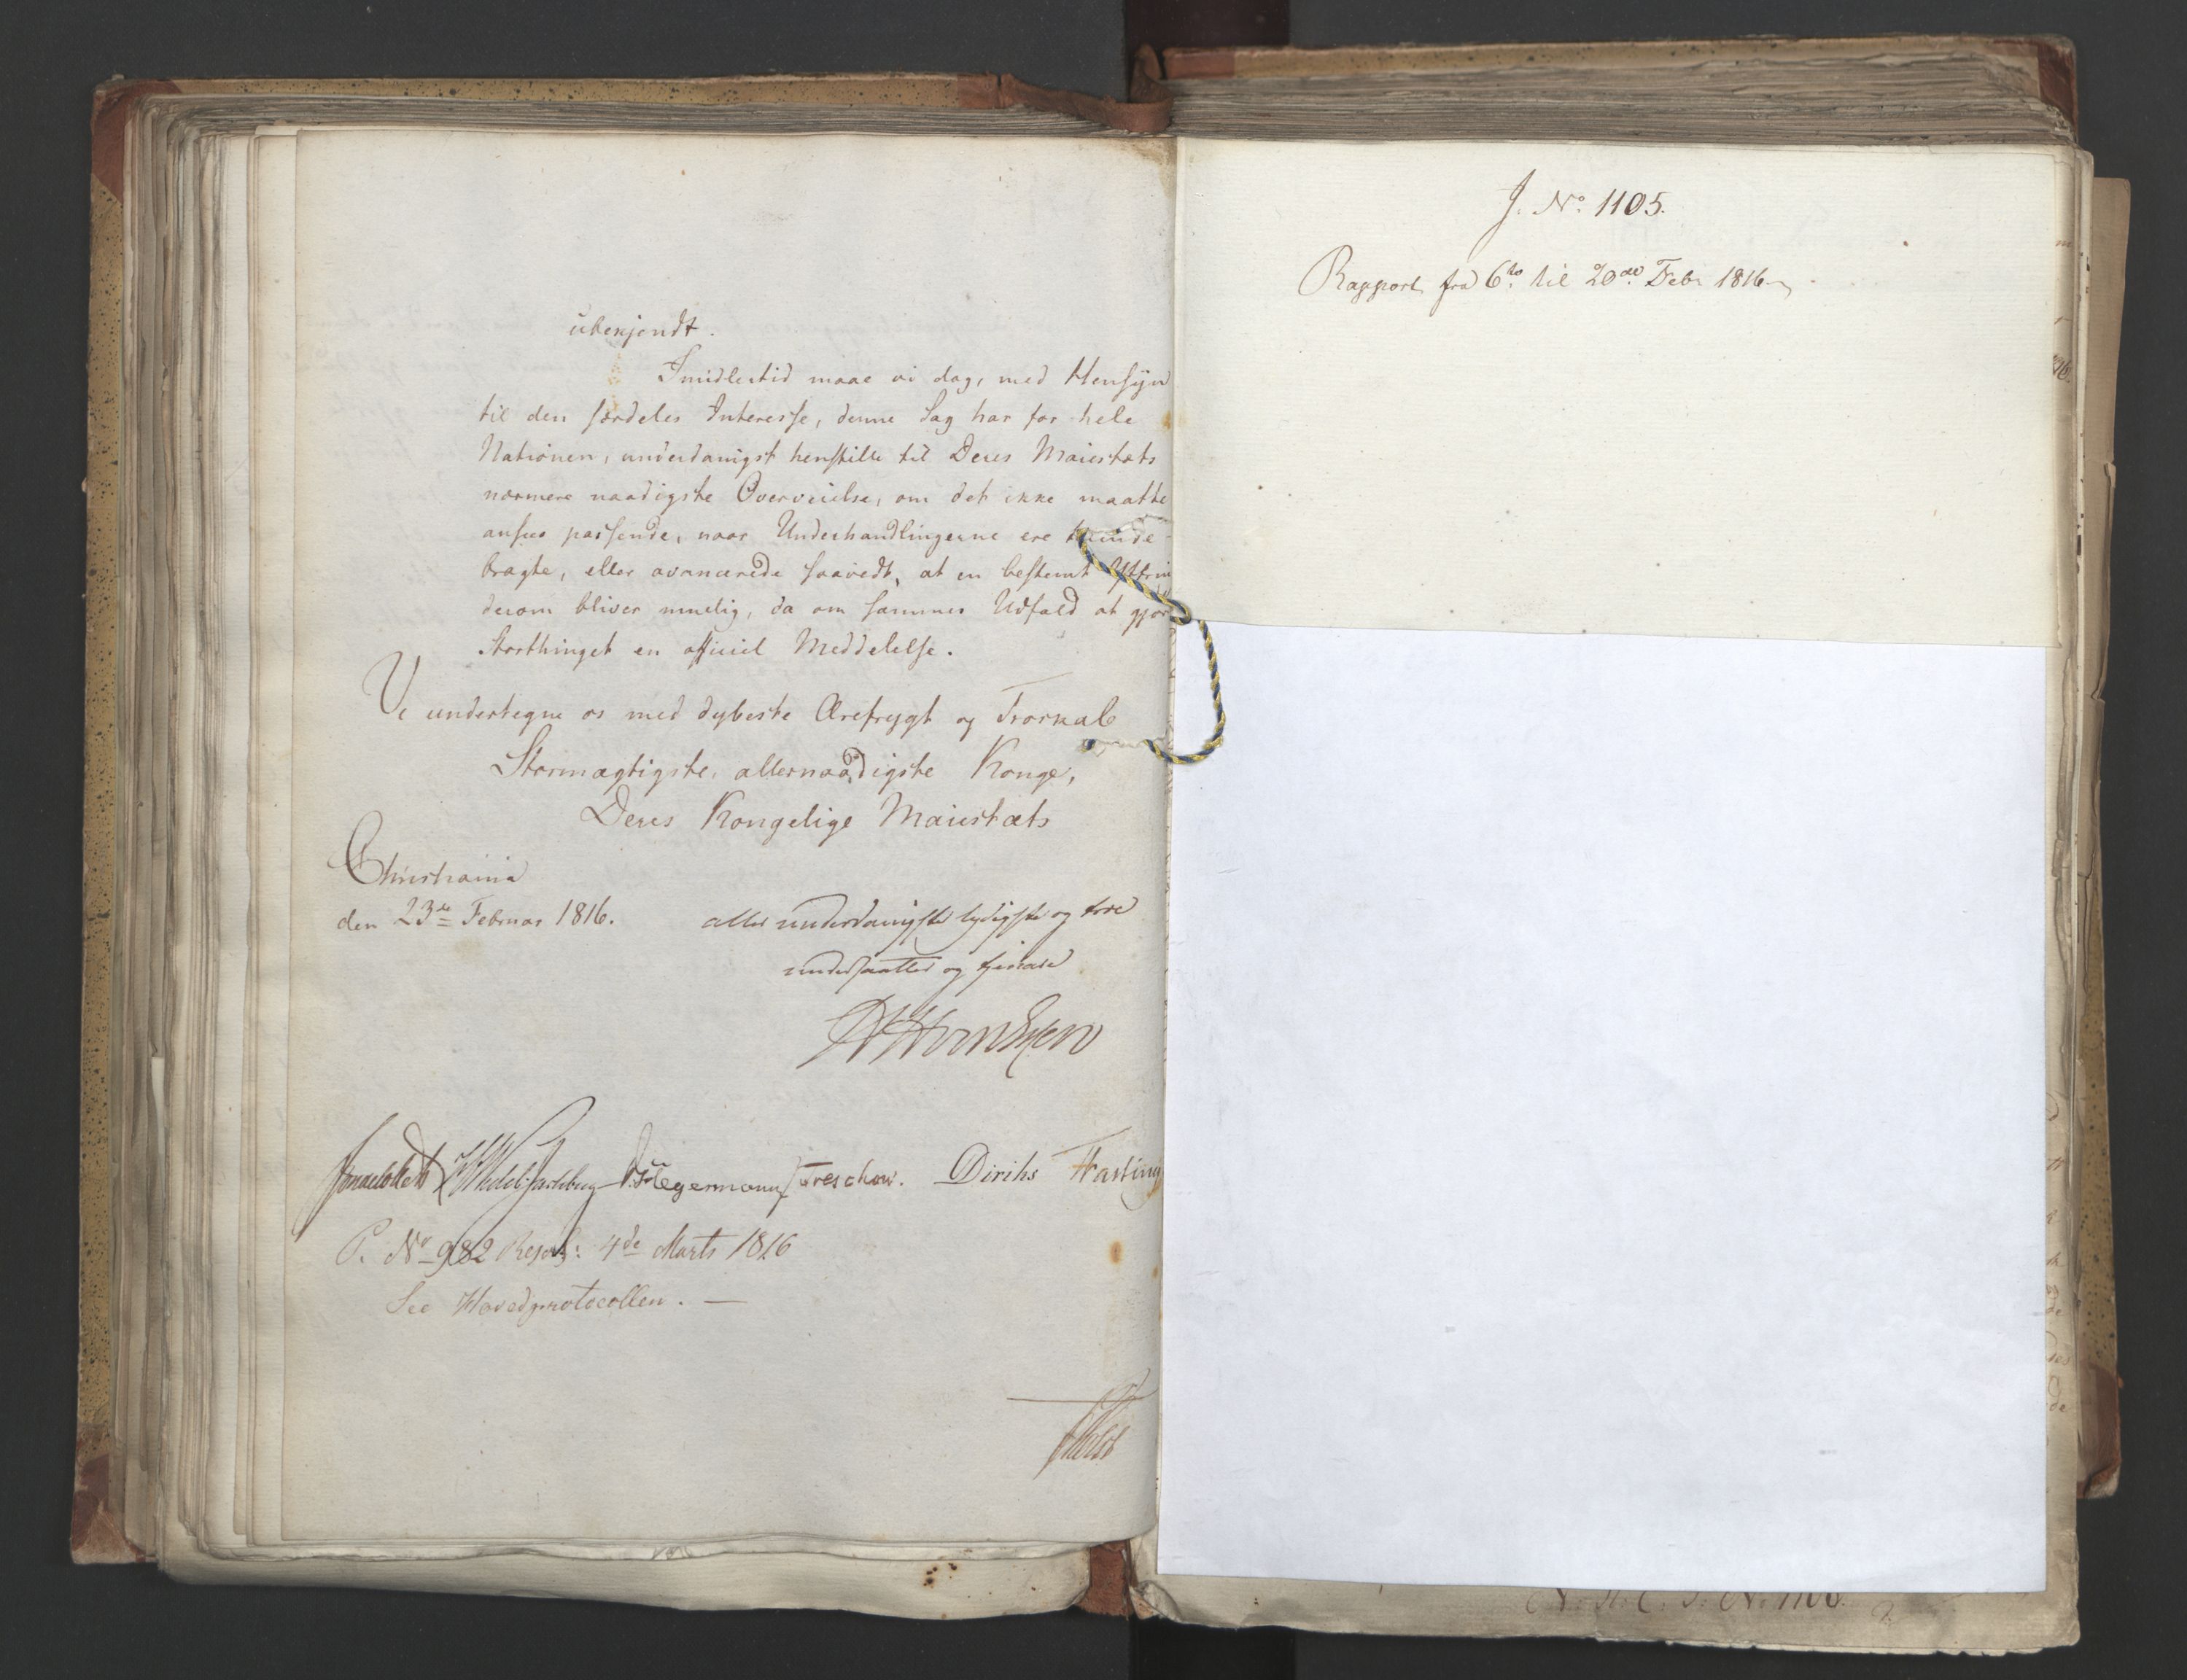 ubekjendt.
Imidlertid maae vi dog, med Hensyn
til den særdeles Interesse, denne Sag har for hele
Nationen, underdanigst henstille til Deres Maiestæts
nærmere naadigste Overveielse, om det ikke maatte
ansees passende, naar Underhandlingerne ere tilende-
bragte, eller avancerede saavidt, at en bestemt Yttrin
derom bliver muelig, da om sammes Udfald at gjør
Storthinget en officiel Meddelelse.
Vi undertegne os med dybeste Ærefrygt og Troskab
Stormægtigste, allernaadigste Konge,
Deres Kongelige Maiestæts
Christiania
den 23de Februar 1816.
allerunderdanigste lydigste og troe
undersaatter og tienere
Sommerhielm HWedelJarlsberg D. Hegermann Treschow. Diriks Fasting
P. No 982 Resol: 4de Marts 1816
See Hovedprotocollen. —
Holst
J. No. 1105.
Rapport fra 6te til 20de Febr 1816
N. R. C. J. No. 1106.